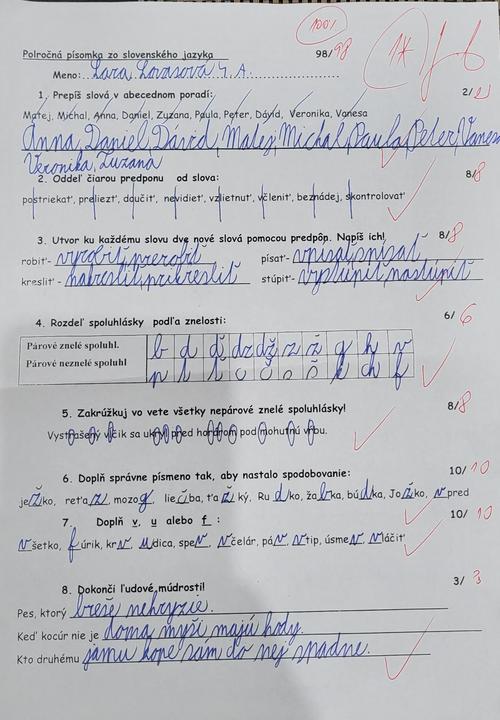 100%
Polročná písomka zo slovenského jazyka 98/98 1*
Meno: Lara 4. A
1. Prepíš slová v abecednom poradí: 2/2
Matej, Michal, Anna, Daniel, Zuzana, Paula, Peter, Dávid, Veronika, Vanesa
Anna, Daniel, Dávid, Matej, Michal, Paula, Peter, Vanesa
Veronika, Zuzana
2. Oddeľ čiarou predponu od slova: 8/8
postriekať, preliezť, doučiť, nevidieť, vzlietnuť, včleniť, beznádej, skontrolovať
3. Utvor ku každému slovu dve nové slová pomocou predpôn. Napíš ich! 8/8
robiť- vyrobiť, prerobiť písať- vpísať, spísať
kresliť- nakresliť, prikresliť stúpiť- vystúpiť, nastúpiť
4. Rozdeľ spoluhlásky podľa znelosti: 6/6
Párové znelé spoluhl. b d ď dz dž z ž g h v
Párové neznelé spoluhl p t ť c č s š k ch f
5. Zakrúžkuj vo vete všetky nepárové znelé spoluhlásky! 8/8
Vystrašený vlčik sa ukryl pred horárom pod mohutnú vŕbu.
6. Doplň správne písmeno tak, aby nastalo spodobovanie: 10/10
ježko, reťaz, mozog, liečba, ťažký, Rudko, žabka, búdka, Jožko, vpred
7. Doplň v, u alebo f: 10/10
všetko, fúrik, krv, udica, spev, včelár, páv, vtip, úsmev, vláčiť
8. Dokonči ľudové múdrosti! 3/3
Pes, ktorý breše nehryzie.
Keď kocúr nie je doma myši majú hody.
Kto druhému jamu kope sám do nej spadne.